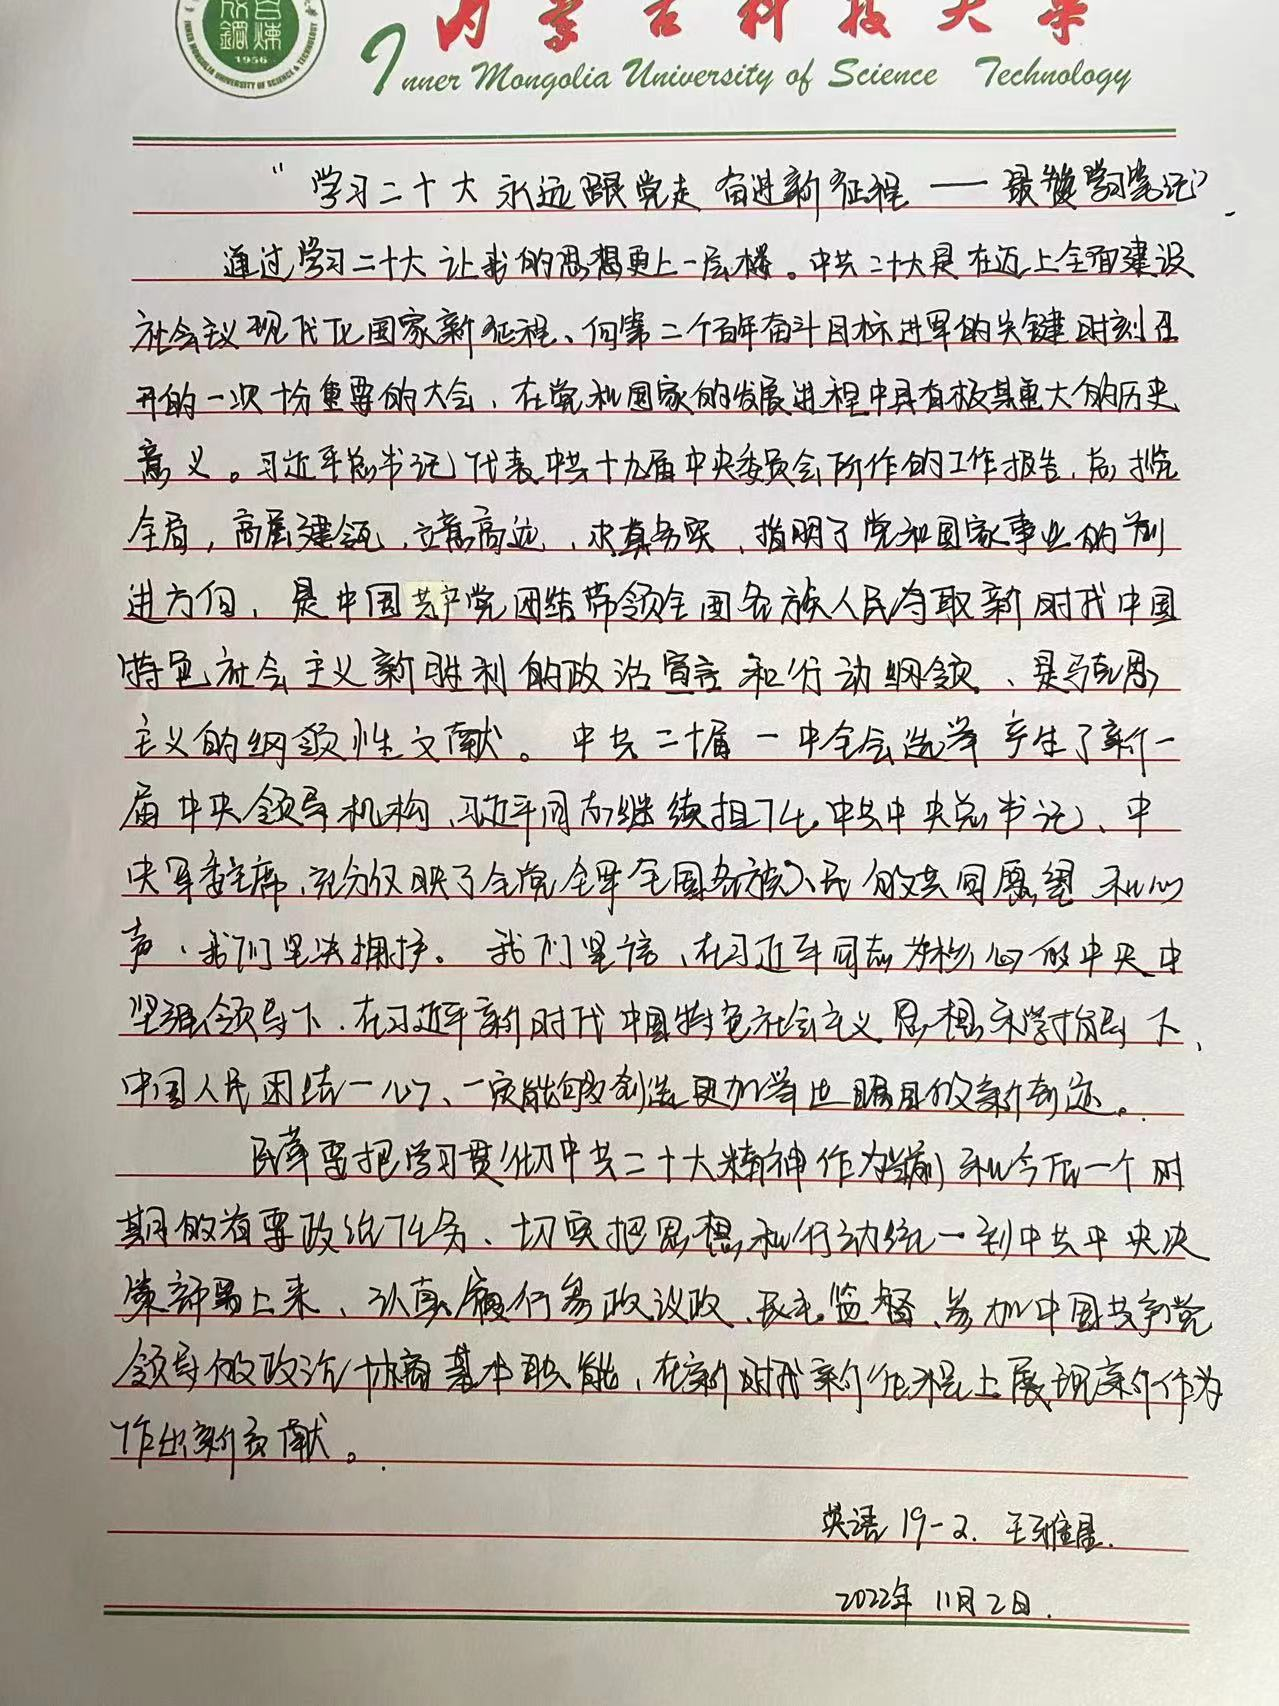 1956
INNER MONGOLIA UNIVERSITY OF SCIENCE & TECHNOLOGY
内蒙古科技大学
Inner Mongolia University of Science Technology
“学习二十大 永远跟党走 奋进新征程 —— 最美学习笔记”
通过学习二十大让我的思想更上一层楼。中共二十大是在迈上全面建设
社会主义现代化国家新征程、向第二个百年奋斗目标进军的关键时刻召
开的一次十分重要的大会、在党和国家的发展进程中具有极其重大的历史
意义。习近平总书记代表中共十九届中央委员会所作的工作报告,总揽
全局,高屋建瓴、立意高远、求真务实、指明了党和国家事业的前
进方向,是中国共产党团结带领全国各族人民夺取新时代中国
特色社会主义新胜利的政治宣言和行动纲领、是马克思
主义的纲领性文献。中共二十届一中全会选举产生了新一
届中央领导机构、习近平同志继续担任中共中央总书记、中
央军委主席,充分反映了全党全军全国各族人民的共同愿望和心
声、我们坚决拥护。我们坚信、在习近平同志为核心的中央中
坚强领导下、在习近平新时代中国特色社会主义思想科学指导下、
中国人民团结一心、一定能够创造更加举世瞩目的新奇迹。
民革要把学习贯彻中共二十大精神作为当前和今后一个时
期的首要政治任务、切实把思想和行动统一到中共中央决
策部署上来、认真履行参政议政、民主监督、参加中国共产党
领导的政治协商基本职能,在新时代新征程上展现新作为
作出新贡献。
英语19-2. 王雅
2022年 11月2日.